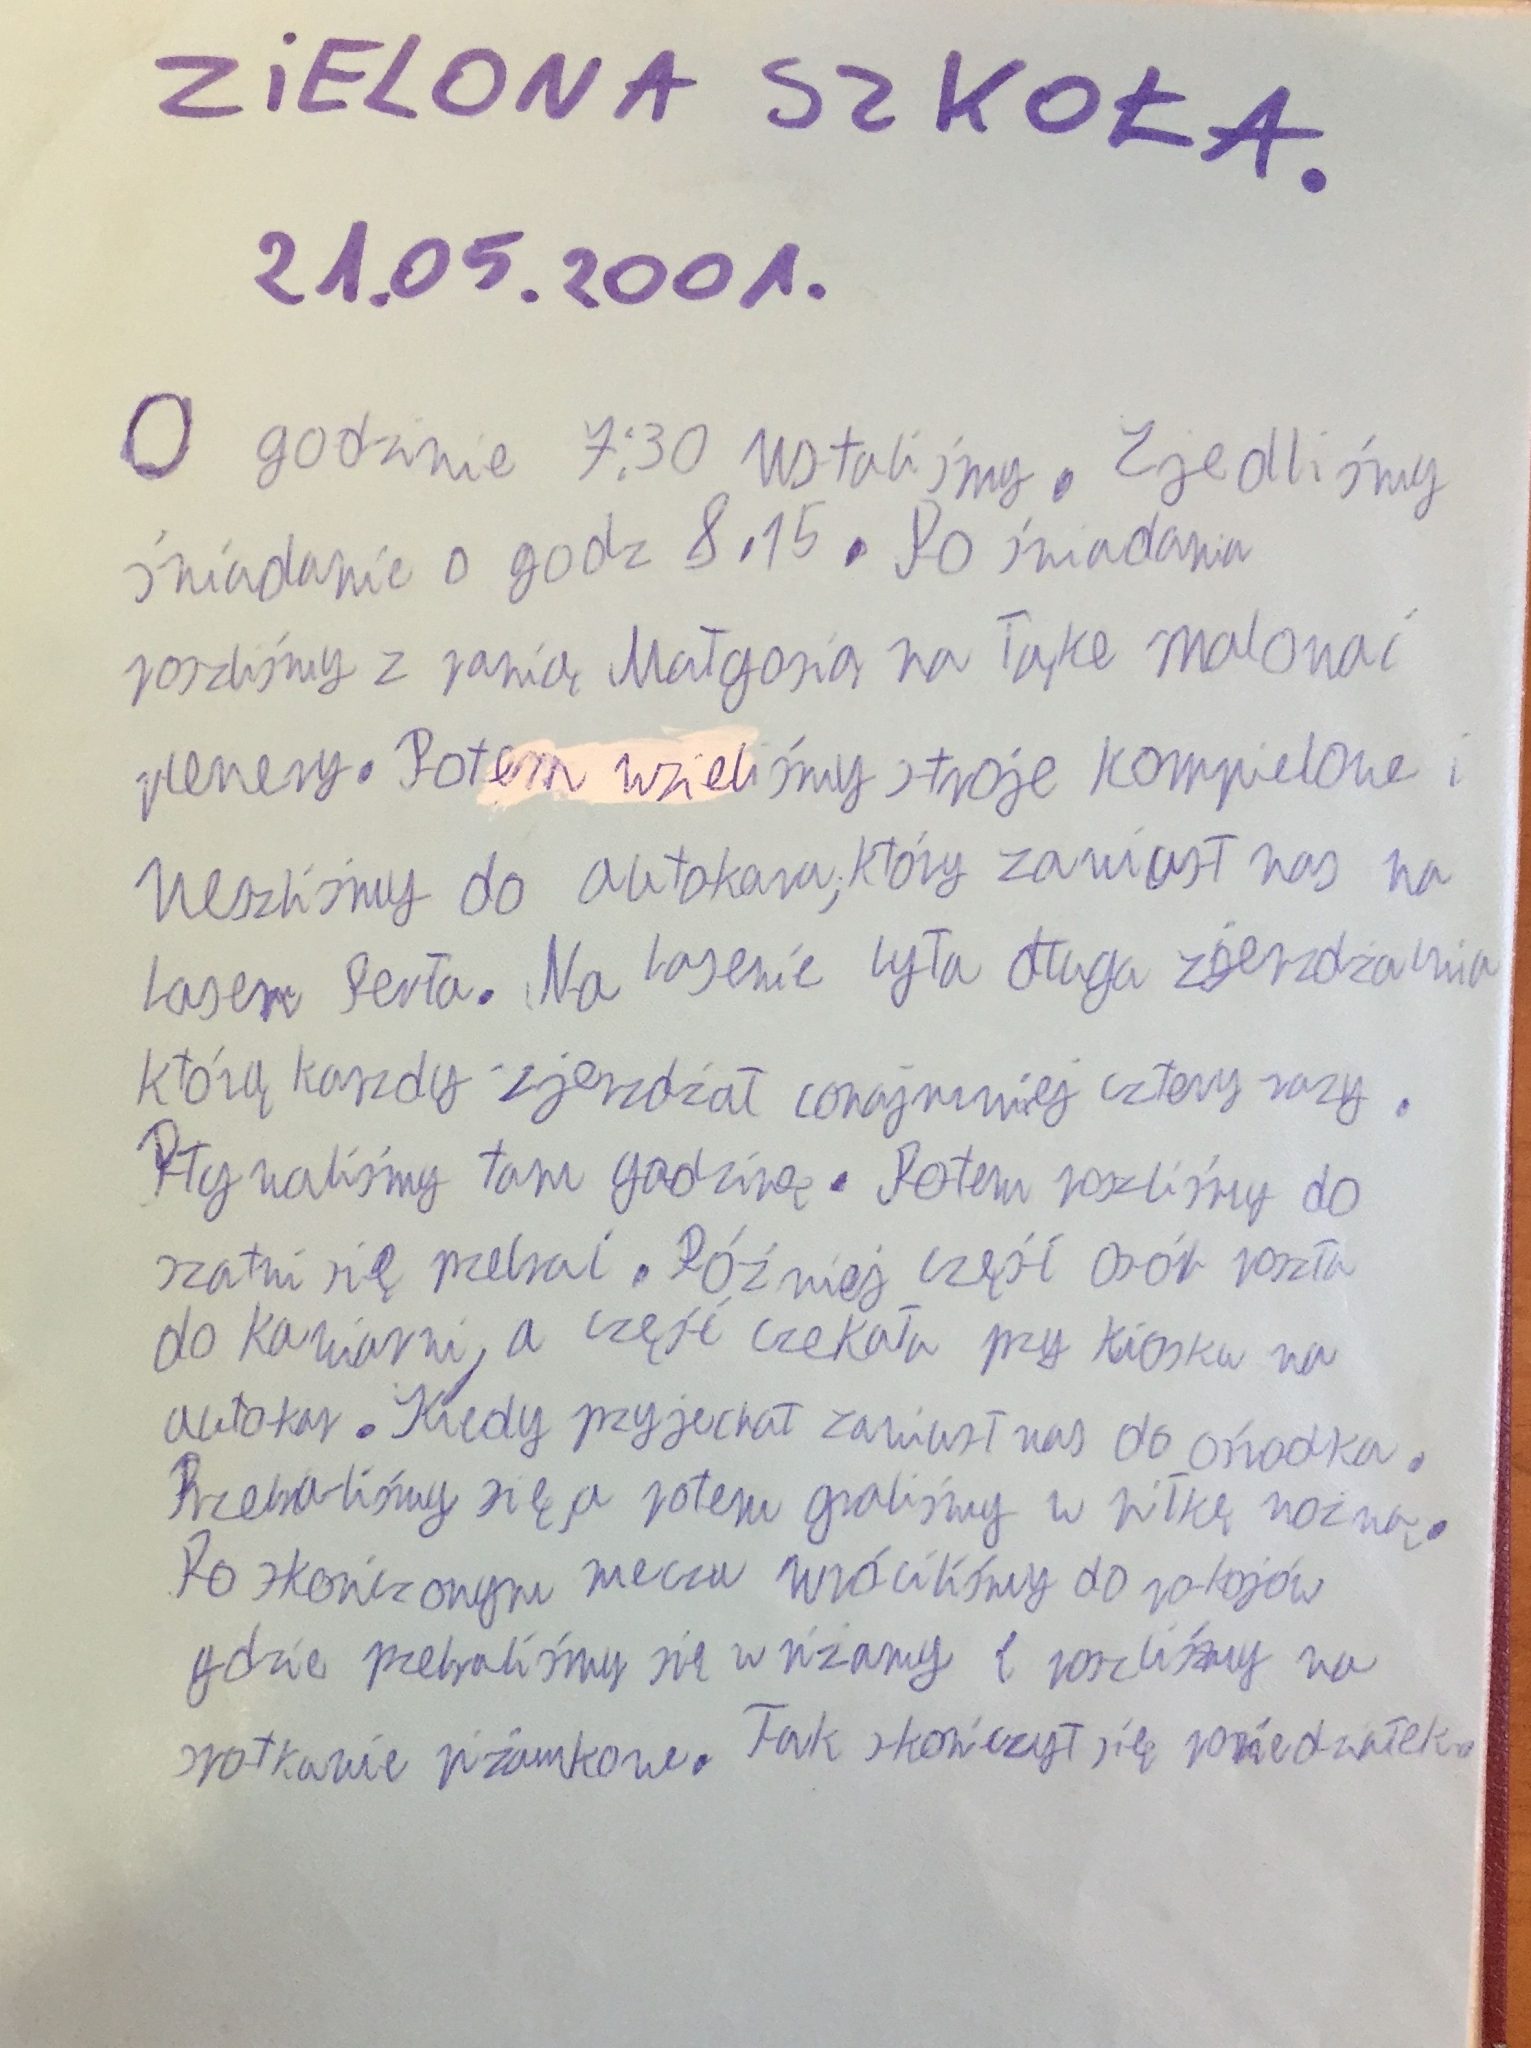 ZiELONA SZKOŁA.
21.05.2001.
O godzinie 7:30 wstaliśmy. Zjedliśmy
śniadanie o godz 8.15. Po śniadania
poszliśmy z panią Małgosią na łąke malować
plenery. Potem wzieliśmy stroje kompielowe i
weszliśmy do autokara, który zawiust nas na
basen Perła. Na basenie była długa zjerzdżalnia
którą karzdy zjerzdżał conajmniej cztery razy.
Pływaliśmy tam godzinę. Potem poszliśmy do
szatni się przebrać. Później część osób poszła
do kawiarni, a część czekała przy kiosku na
autokar. Kiedy przyjechał zawiusł nas do ośrodka.
Przebraliśmy się, a potem graliśmy w piłkę nożną.
Po skończonym meczu wróciliśmy do pokojów
gdzie przebraliśmy się w piżamy i poszliśmy na
spotkanie piżamkowe. Tak skończył się poniedziałek.